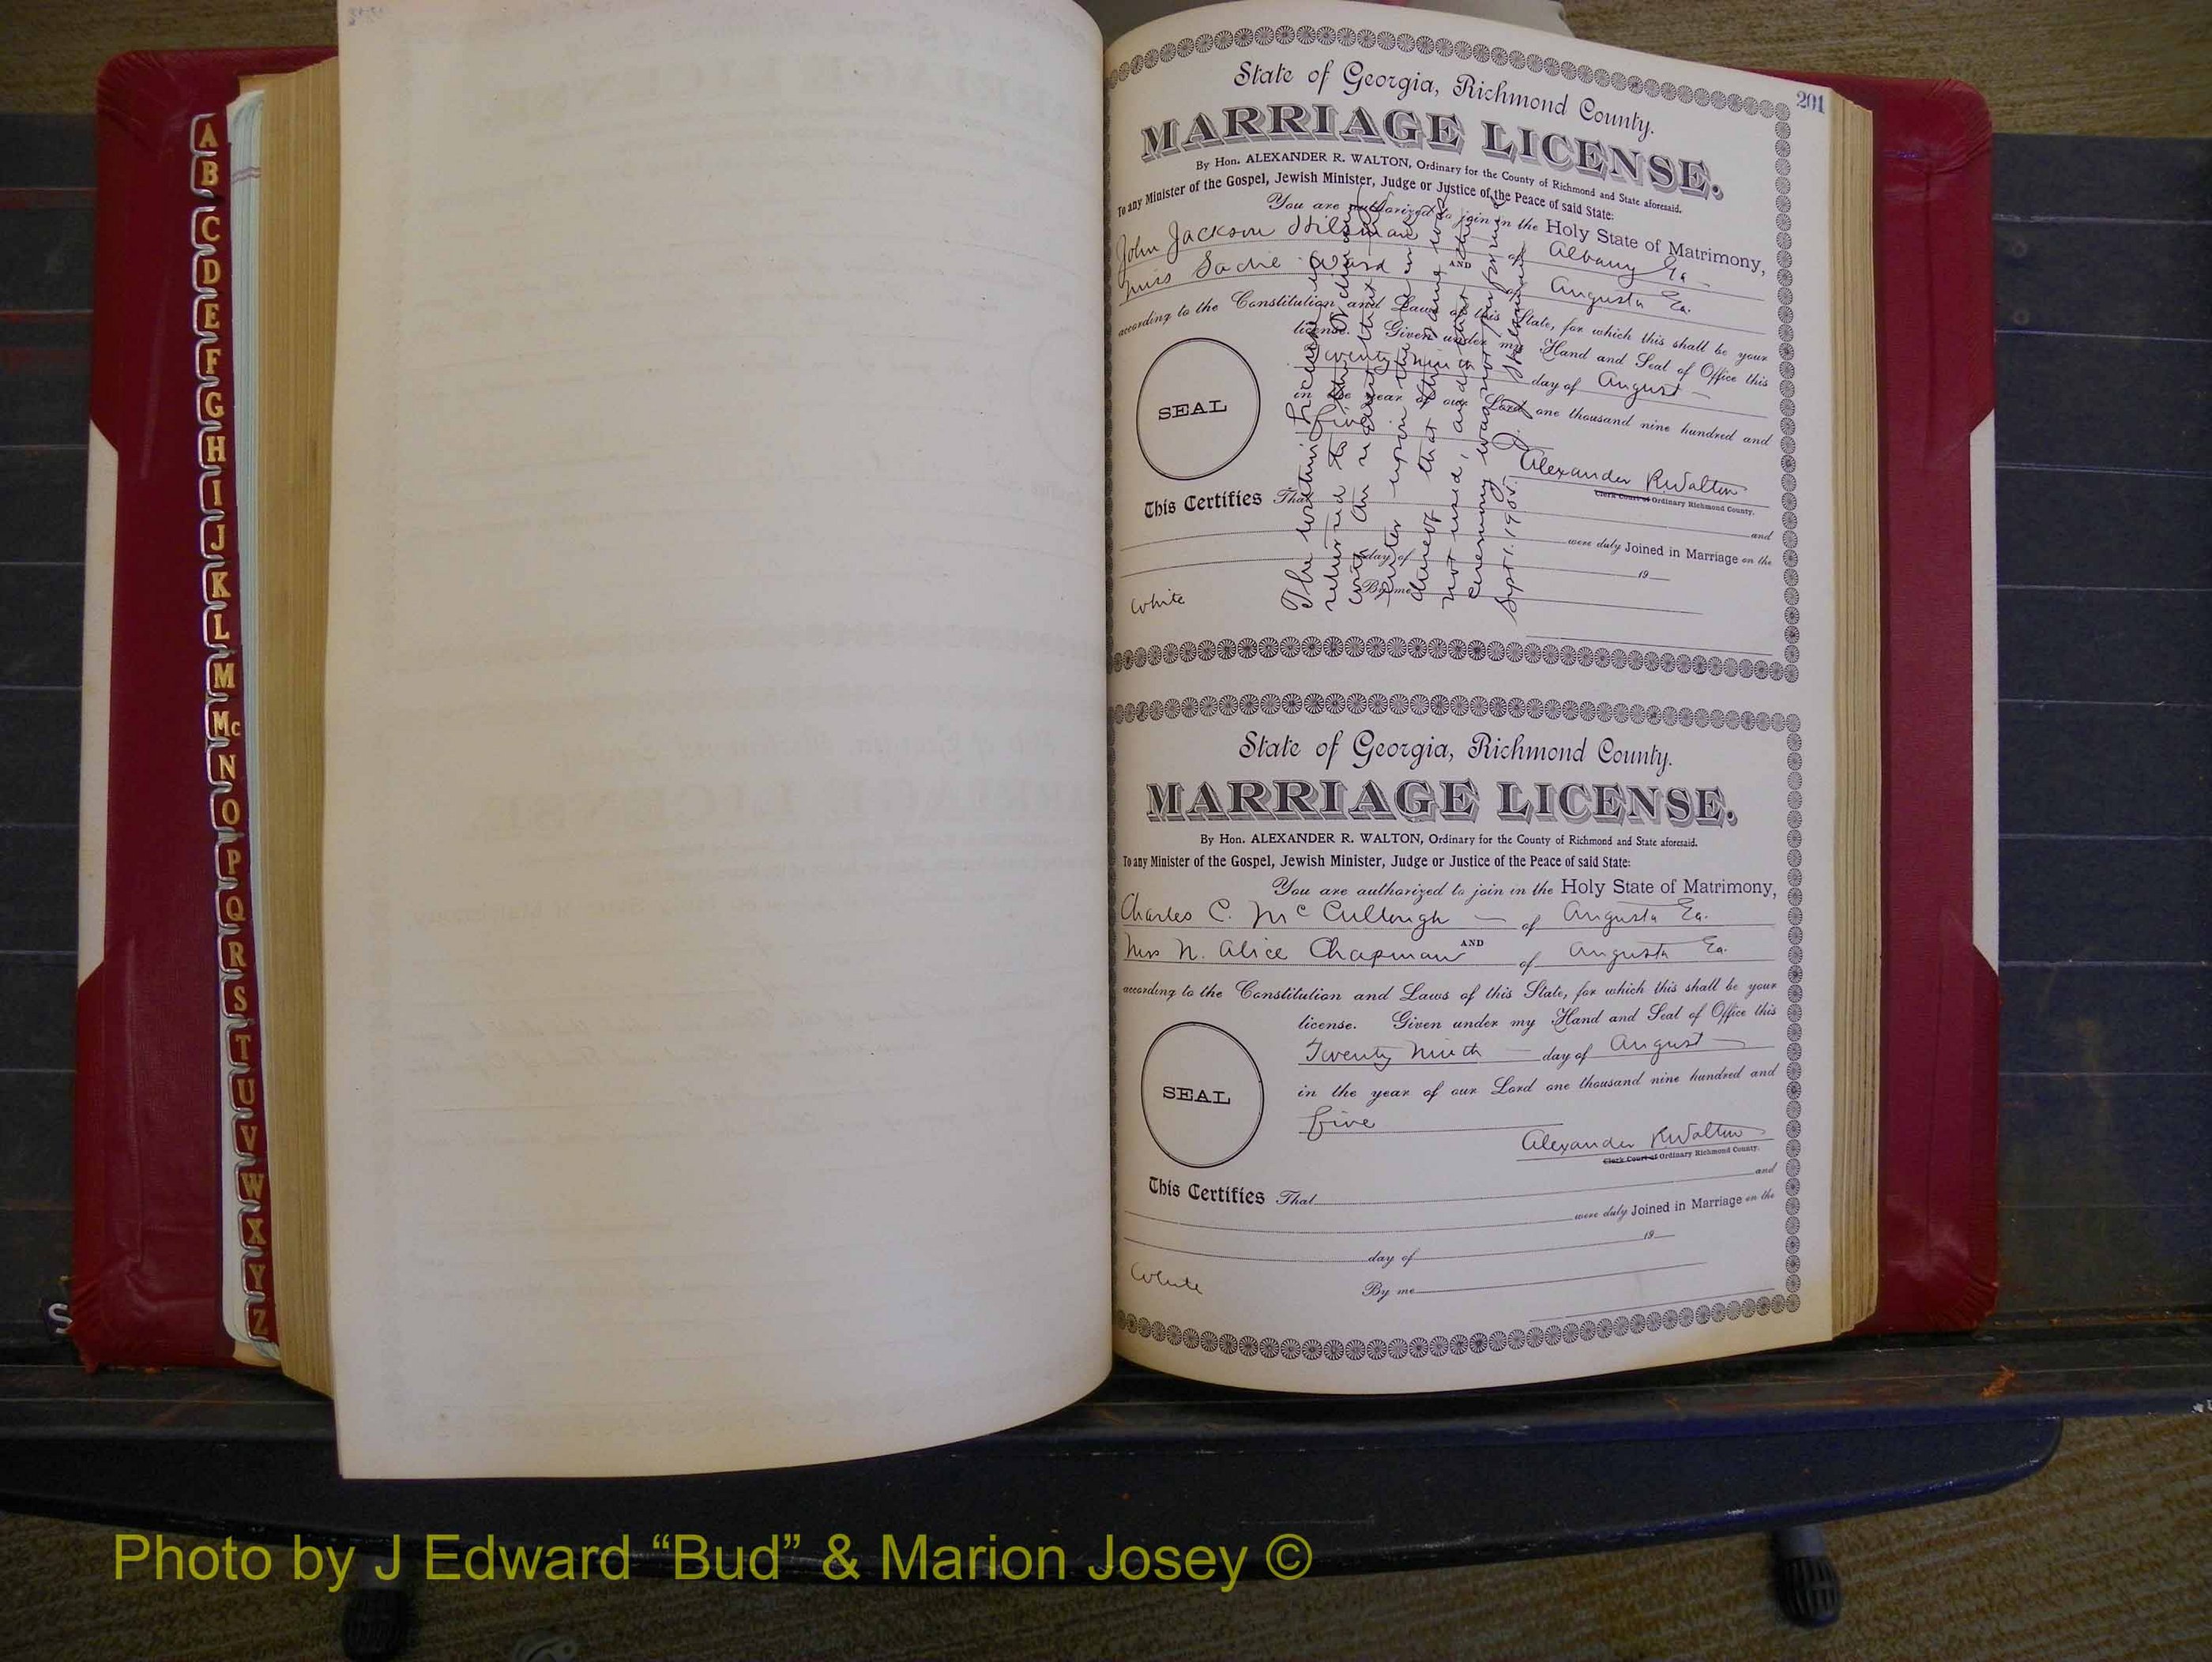 A
B
C
D
E
F
G
H
I
J
K
L
M
Mc
N
O
P
Q
R
S
T
U
V
W
X
Y
Z
201
State of Georgia, Richmond County.
MARRIAGE LICENSE.
By Hon. ALEXANDER R. WALTON, Ordinary for the County of Richmond and State aforesaid.
To any Minister of the Gospel, Jewish Minister, Judge or Justice of the Peace of said State:
You are authorized to join in the Holy State of Matrimony,
John Jackson of Albany Ga
AND
Miss Ward of Augusta Ga.
according to the Constitution and Laws of this State, for which this shall be your
license. Given under my Hand and Seal of Office this
Twenty Ninth day of August
in the year of our Lord one thousand nine hundred and
five
SEAL
Alexander R Walton
Clerk Court of Ordinary Richmond County.
This Certifies That and
were duly Joined in Marriage on the
day of 19
By me
White
The within license was
returned to this
with an
upon the
thereof that the same was
not used, and that the
ceremony was not performed
Sept 1. 1905.
State of Georgia, Richmond County.
MARRIAGE LICENSE.
By Hon. ALEXANDER R. WALTON, Ordinary for the County of Richmond and State aforesaid.
To any Minister of the Gospel, Jewish Minister, Judge or Justice of the Peace of said State:
You are authorized to join in the Holy State of Matrimony,
Charles C. McCullough of Augusta Ga.
AND
N. Alice Chapman of Augusta Ga.
according to the Constitution and Laws of this State, for which this shall be your
license. Given under my Hand and Seal of Office this
Twenty Ninth day of August
in the year of our Lord one thousand nine hundred and
five
SEAL
Alexander R Walton
Clerk Court of Ordinary Richmond County.
This Certifies That and
were duly Joined in Marriage on the
day of 19
By me
White
S
Photo by J Edward “Bud” & Marion Josey ©